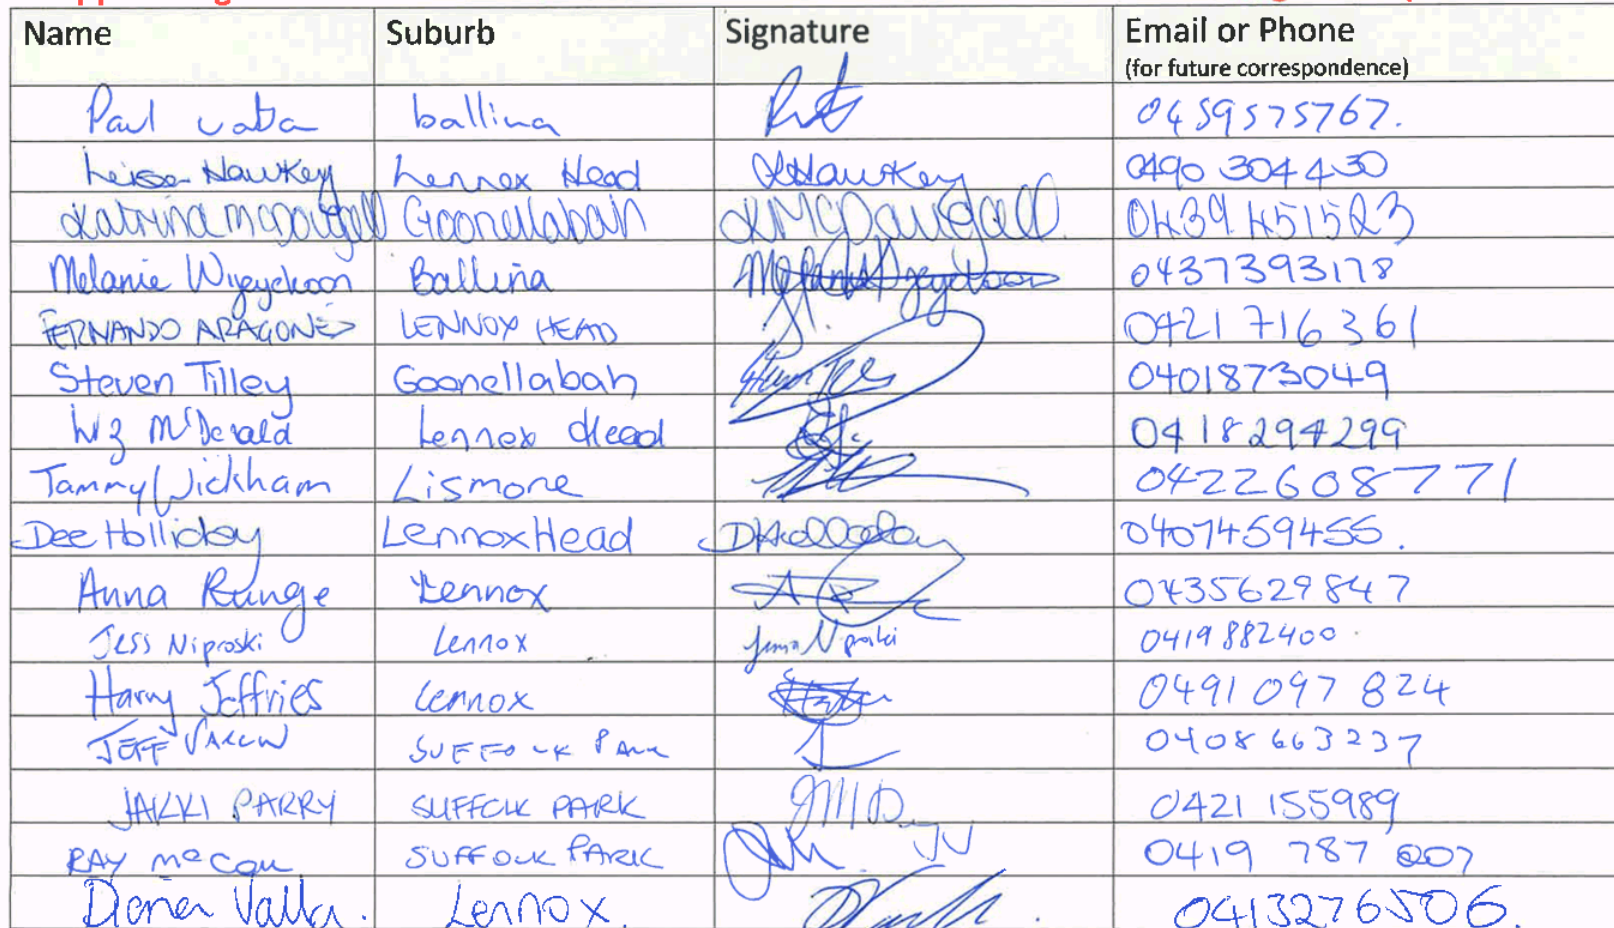 Name Suburb Signature Email or Phone
(for future correspondence)
Paul ballina 0459575767.
Leisa Hawkey Lennox Head LHawkey 0490 304 430
Katrina McDougall Goonellabah KMcDougall 0439 451523
Melanie Wijeyekoon Ballina 0437393178
FERNANDO ARAGONES LENNOX HEAD 0421 716 361
Steven Tilley Goonellabah 0401873049
Liz McDonald Lennox Head 0418294299
Tammy Wickham Lismore 0422608771
Dee Holliday Lennox Head DHolliday 0407459455.
Anna Runge Lennox AR 0435629847
Jess Niproski Lennox Niproski 0419882400
Harry Jeffries Lennox 0491 097 824
JEFF SUFFOLK PARK 0408 663 237
JAKKI PARRY SUFFOLK PARK 0421 155989
RAY SUFFOLK PARK 0419 787 207
Diona Valla. Lennox. 0413276506.